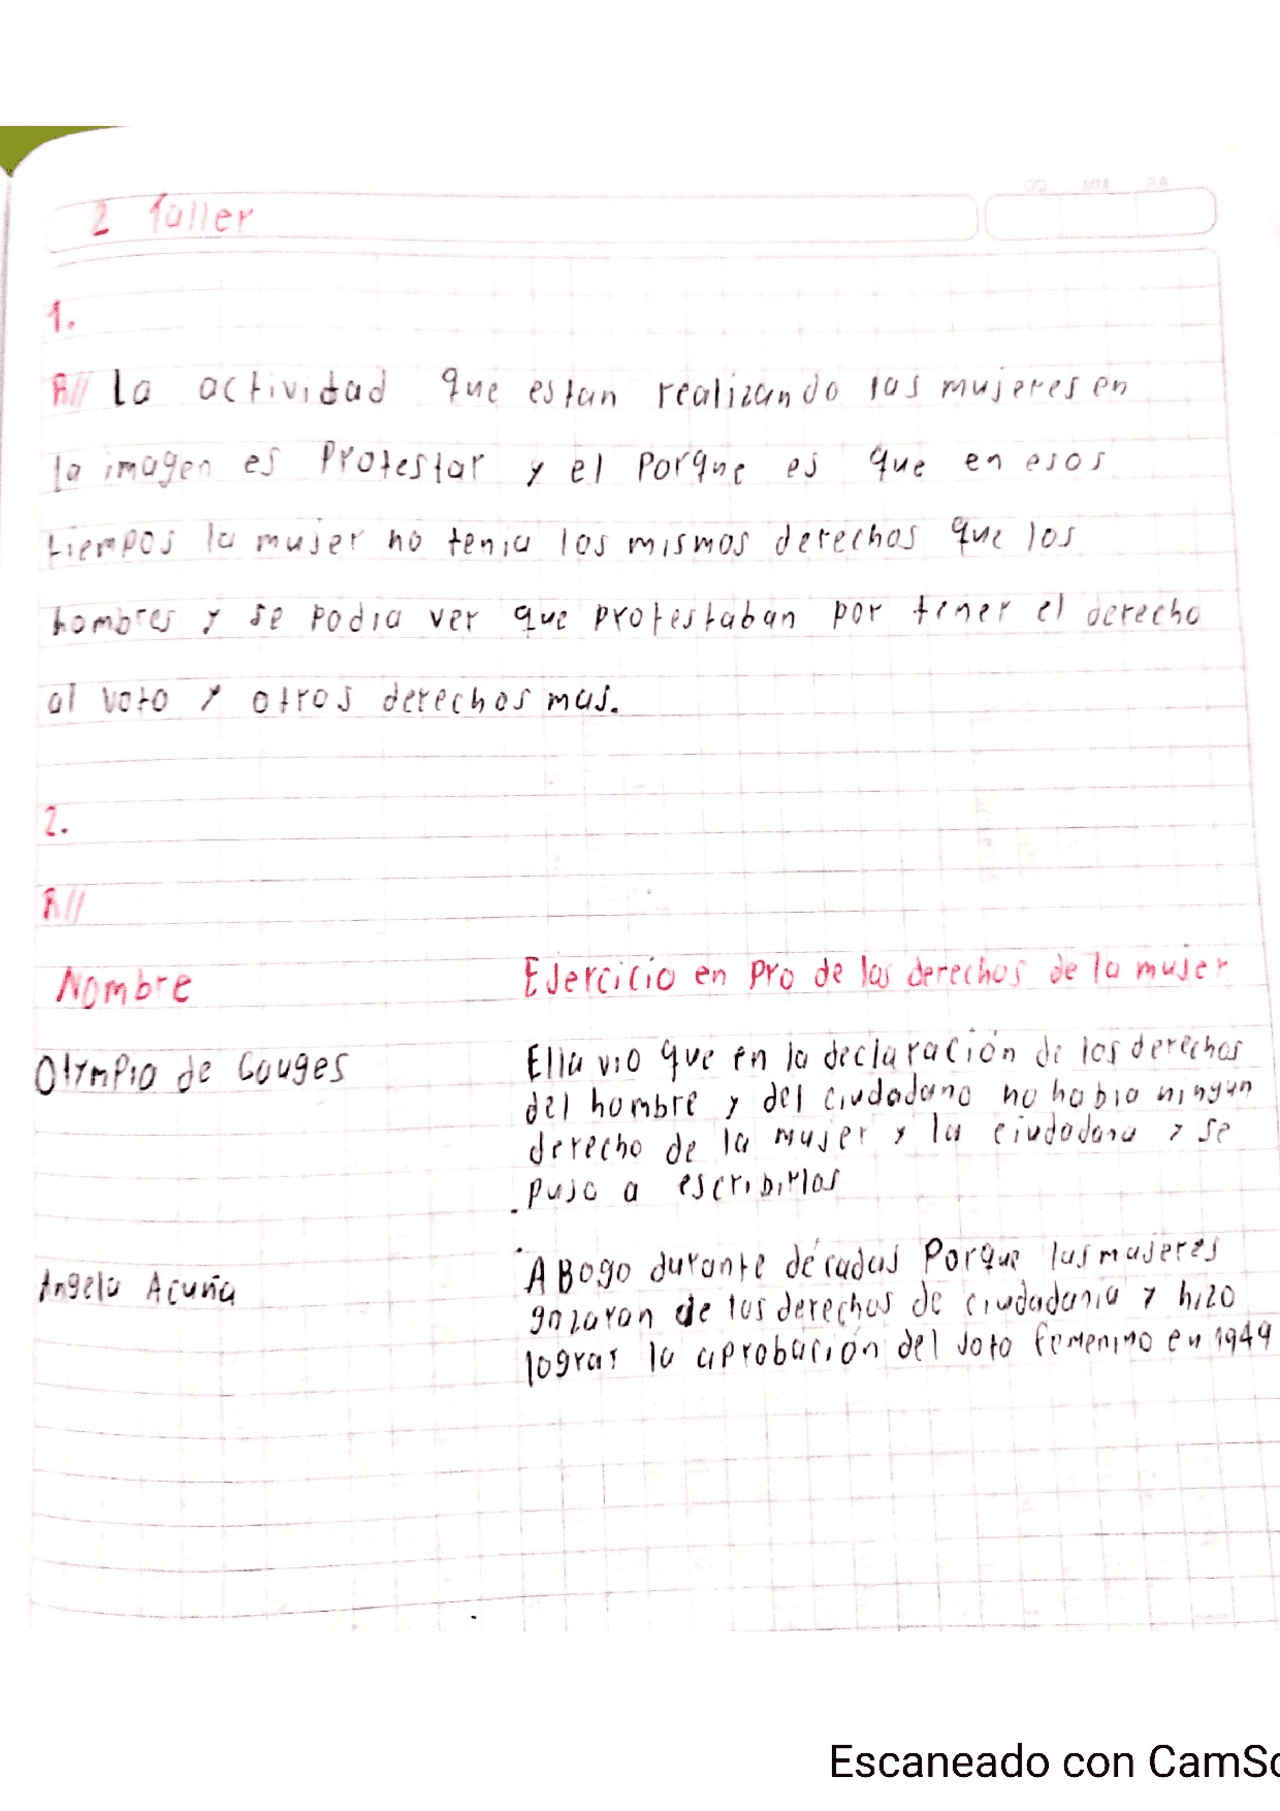 2 Taller
DD MM AA
1.
R// La actividad que estan realizando las mujeres en
la imagen es Protestar y el Porque es que en esos
tiempos la mujer no tenia los mismos derechos que los
hombres y se podia ver que protestaban por tener el derecho
al voto y otros derechos mas.
2.
R//
Nombre
Ejercicio en pro de los derechos de la mujer
Olympia de Gouges
Ella vio que en la declaración de los derechos
del hombre y del ciudadano no habia ningun
derecho de la mujer y la ciudadana y se
puso a escribirlos
Angela Acuña
ABogo durante décadas Porque las mujeres
gozaran de los derechos de ciudadania y hizo
lograr la aprobación del voto femenino en 1949
Escaneado con CamSc